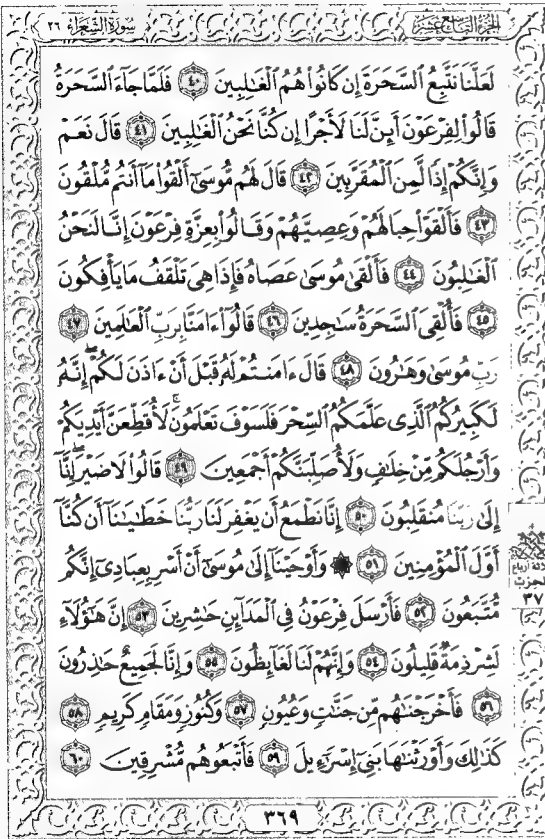 الجزء التاسع عشر
سورة الشعراء ٢٦
لَعَلَّنَا نَتَّبِعُ ٱلسَّحَرَةَ إِن كَانُوا۟ هُمُ ٱلْغَـٰلِبِينَ ٤٠ فَلَمَّا جَآءَ ٱلسَّحَرَةُ
قَالُوا۟ لِفِرْعَوْنَ أَئِنَّ لَنَا لَأَجْرًا إِن كُنَّا نَحْنُ ٱلْغَـٰلِبِينَ ٤١ قَالَ نَعَمْ
وَإِنَّكُمْ إِذًا لَّمِنَ ٱلْمُقَرَّبِينَ ٤٢ قَالَ لَهُم مُّوسَىٰٓ أَلْقُوا۟ مَآ أَنتُم مُّلْقُونَ
٤٣ فَأَلْقَوْا۟ حِبَالَهُمْ وَعِصِيَّهُمْ وَقَالُوا۟ بِعِزَّةِ فِرْعَوْنَ إِنَّا لَنَحْنُ
ٱلْغَـٰلِبُونَ ٤٤ فَأَلْقَىٰ مُوسَىٰ عَصَاهُ فَإِذَا هِىَ تَلْقَفُ مَا يَأْفِكُونَ
٤٥ فَأُلْقِىَ ٱلسَّحَرَةُ سَـٰجِدِينَ ٤٦ قَالُوٓا۟ ءَامَنَّا بِرَبِّ ٱلْعَـٰلَمِينَ ٤٧
رَبِّ مُوسَىٰ وَهَـٰرُونَ ٤٨ قَالَ ءَامَنتُمْ لَهُۥ قَبْلَ أَنْ ءَاذَنَ لَكُمْ ۖ إِنَّهُۥ
لَكَبِيرُكُمُ ٱلَّذِى عَلَّمَكُمُ ٱلسِّحْرَ فَلَسَوْفَ تَعْلَمُونَ ۚ لَأُقَطِّعَنَّ أَيْدِيَكُمْ
وَأَرْجُلَكُم مِّنْ خِلَـٰفٍ وَلَأُصَلِّبَنَّكُمْ أَجْمَعِينَ ٤٩ قَالُوا۟ لَا ضَيْرَ ۖ إِنَّآ
إِلَىٰ رَبِّنَا مُنقَلِبُونَ ٥٠ إِنَّا نَطْمَعُ أَن يَغْفِرَ لَنَا رَبُّنَا خَطَـٰيَـٰنَآ أَن كُنَّآ
أَوَّلَ ٱلْمُؤْمِنِينَ ٥١ ۞ وَأَوْحَيْنَآ إِلَىٰ مُوسَىٰٓ أَنْ أَسْرِ بِعِبَادِىٓ إِنَّكُم
مُّتَّبَعُونَ ٥٢ فَأَرْسَلَ فِرْعَوْنُ فِى ٱلْمَدَآئِنِ حَـٰشِرِينَ ٥٣ إِنَّ هَـٰٓؤُلَآءِ
لَشِرْذِمَةٌ قَلِيلُونَ ٥٤ وَإِنَّهُمْ لَنَا لَغَآئِظُونَ ٥٥ وَإِنَّا لَجَمِيعٌ حَـٰذِرُونَ
٥٦ فَأَخْرَجْنَـٰهُم مِّن جَنَّـٰتٍ وَعُيُونٍ ٥٧ وَكُنُوزٍ وَمَقَامٍ كَرِيمٍ ٥٨
كَذَٰلِكَ وَأَوْرَثْنَـٰهَا بَنِىٓ إِسْرَٰٓءِيلَ ٥٩ فَأَتْبَعُوهُم مُّشْرِقِينَ ٦٠
أرباع
الحزب
٣٧
٣٦٩